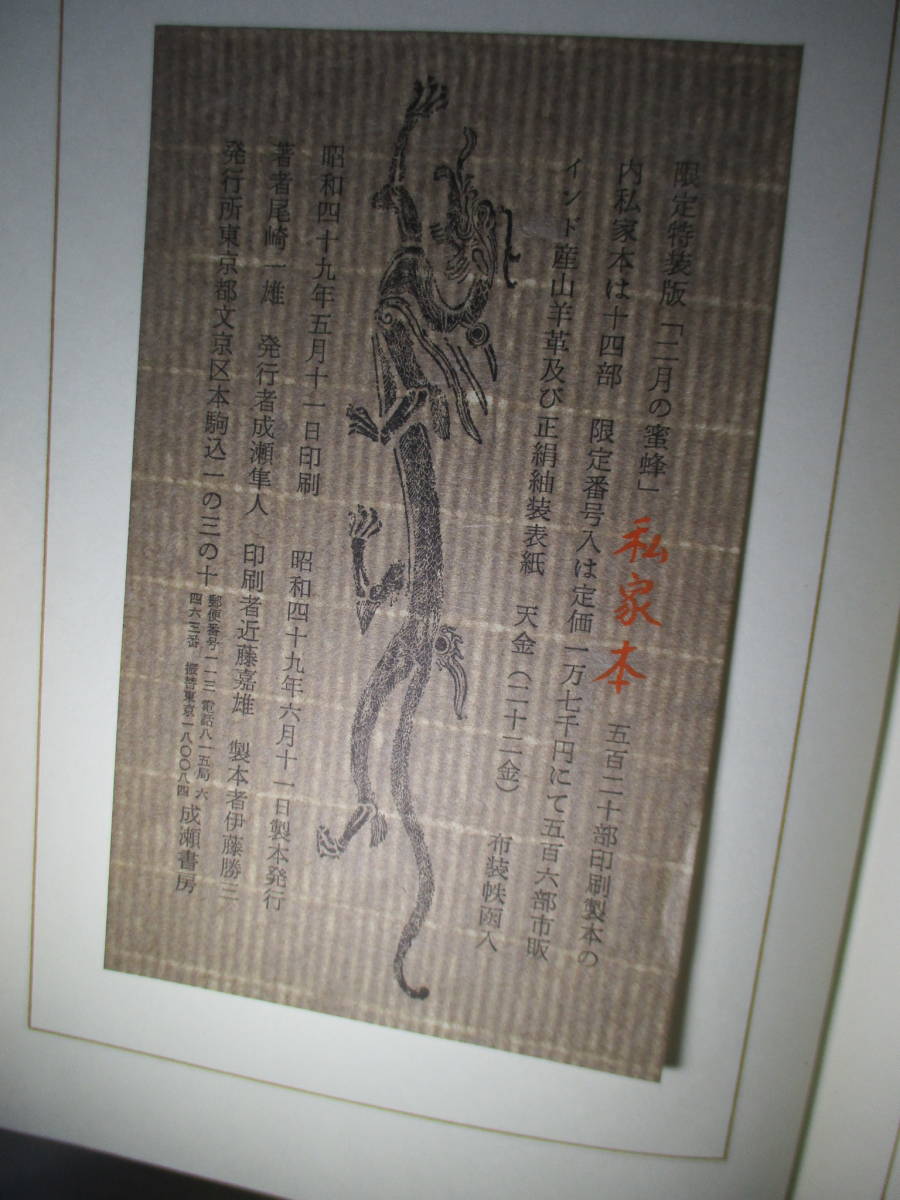 限定特装版「二月の蜜蜂」 私家本 五百二十部印刷製本の
内私家本は十四部 限定番号入は定価一万七千円にて五百六部市販
インド産山羊革及び正絹紬装表紙 天金(二十二金) 布装帙函入
昭和四十九年五月十一日印刷 昭和四十九年六月十一日製本発行
著者尾崎一雄 発行者成瀬隼人 印刷者近藤嘉雄 製本者伊藤勝三
発行所東京都文京区本駒込一の三の十 郵便番号一一三 電話八一五局六
四六三番 振替東京一八〇〇八四 成瀬書房